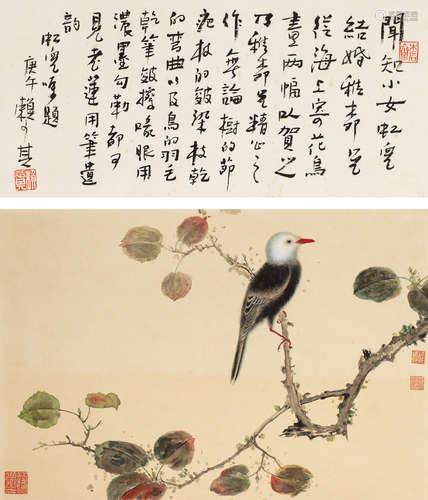 聞知小女虹霓
結婚稚柳兄
從海上寄花鳥
畫兩幅以賀之
乃稚柳兄精心之
作無論樹的節
疤枝的皴染枝乾
的彎曲以及鳥的羽毛
乾筆皴擦喙眼用
濃墨勾勒都可
見老蓮用筆遺
韻
虹霓索題
庚午賴少其